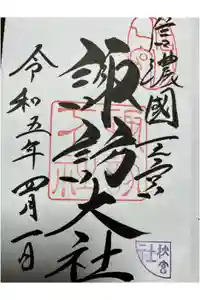 信濃國一之宮
諏訪大社
令和五年四月一日
秋宮